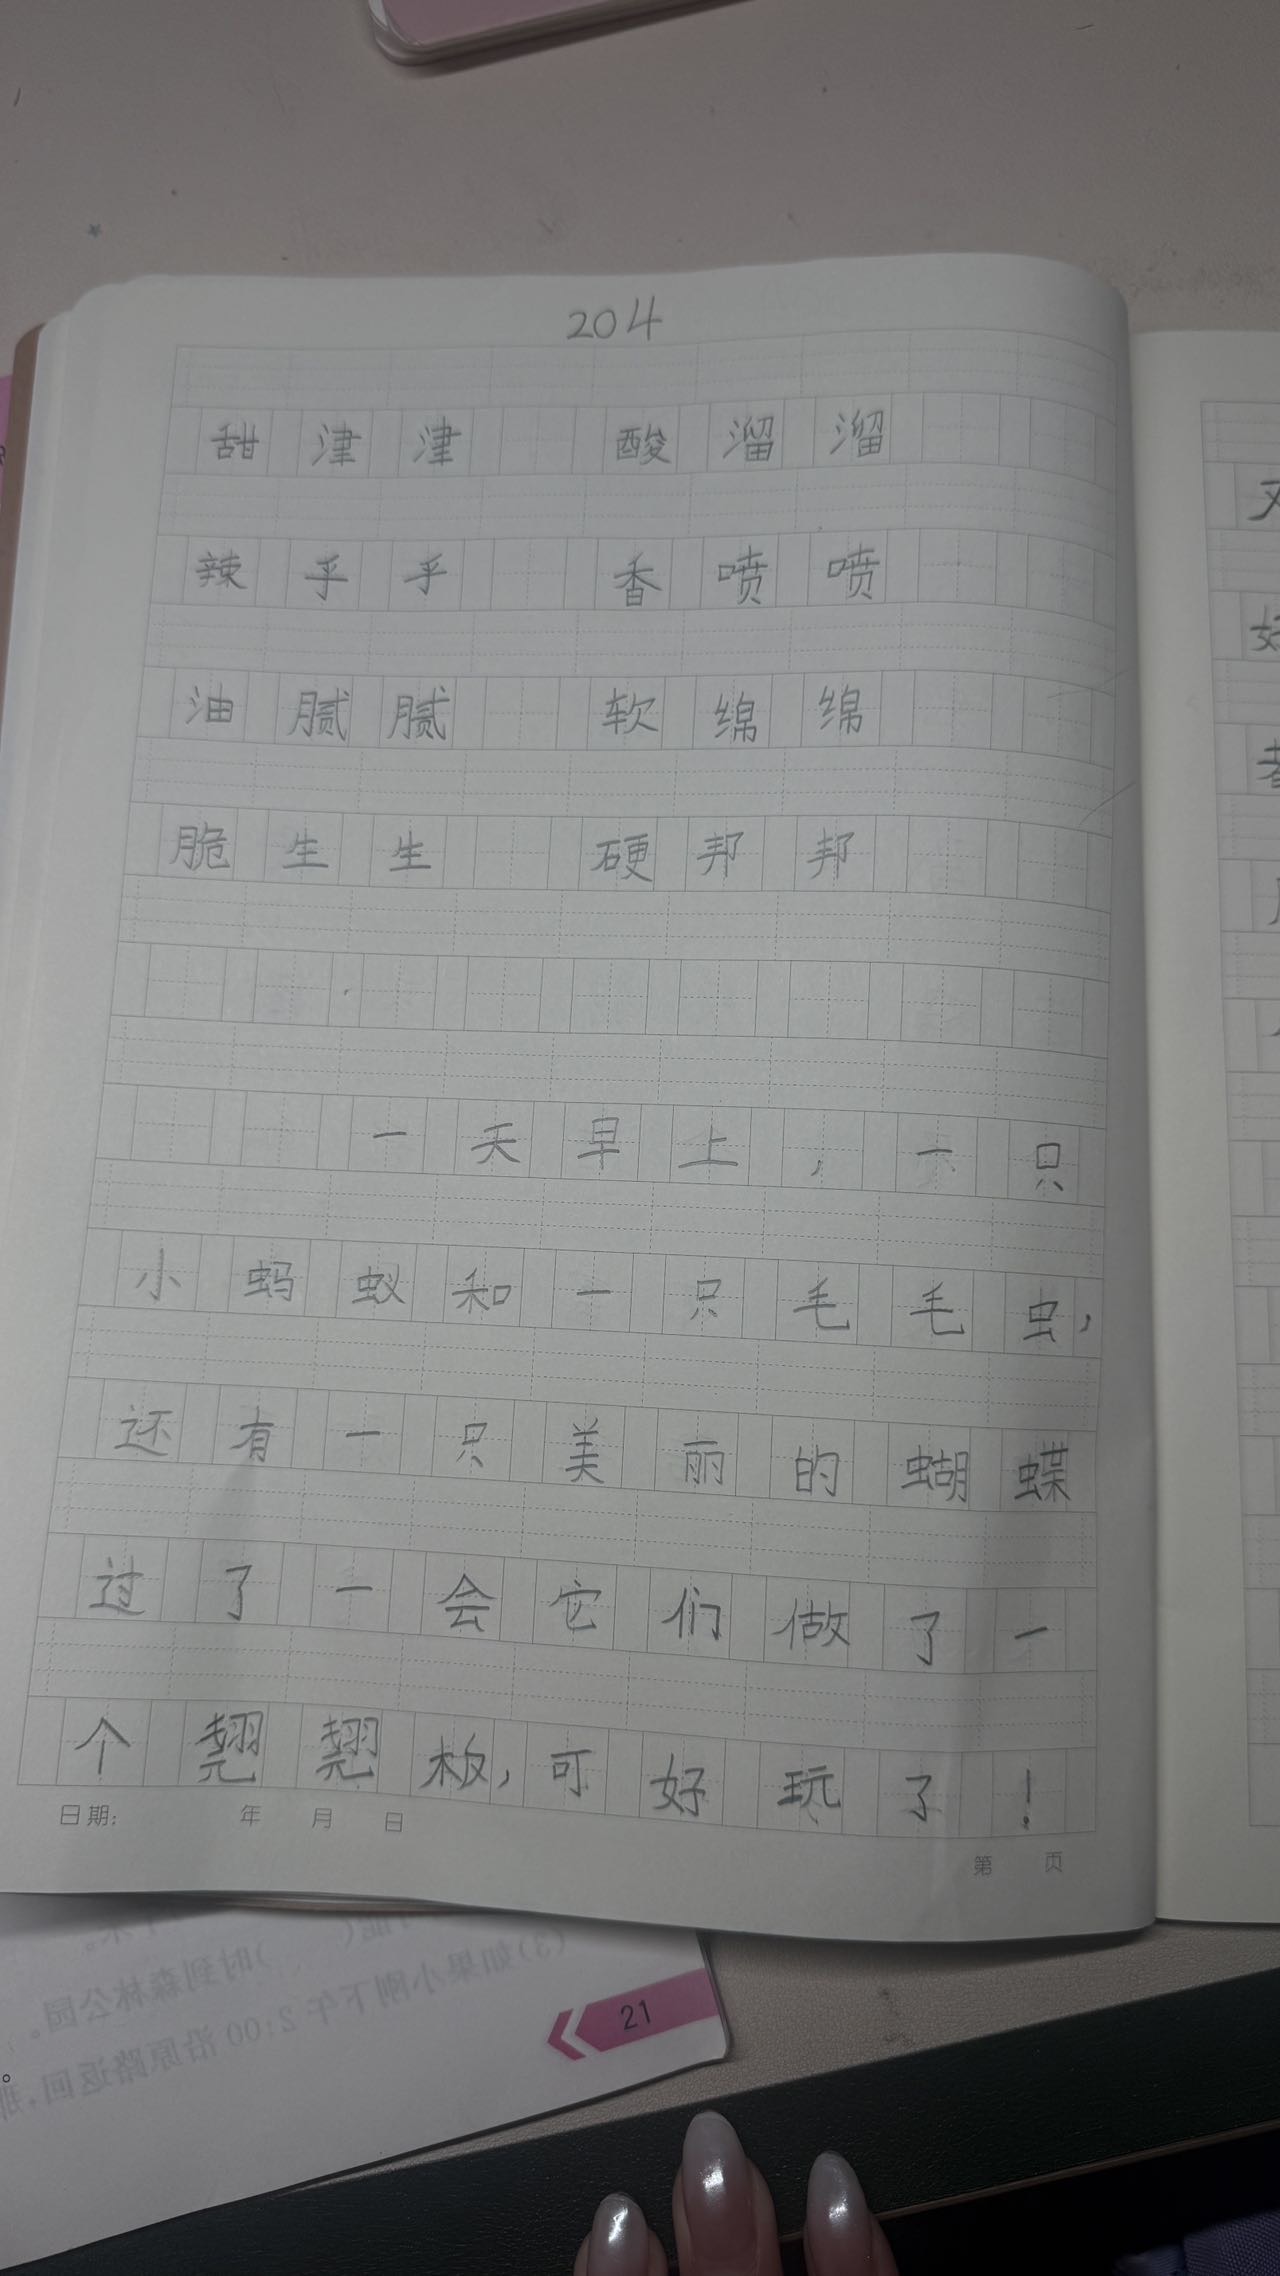 204
甜津津 酸溜溜
辣乎乎 香喷喷
油腻腻 软绵绵
脆生生 硬邦邦
一天早上，一只
小蚂蚁和一只毛毛虫，
还有一只美丽的蝴蝶
过了一会它们做了一
个翘翘板，可好玩了！
日期： 年 月 日
第 页
(3)如果小刚下午2:00沿原路返回,那
)时到森林公园。
21